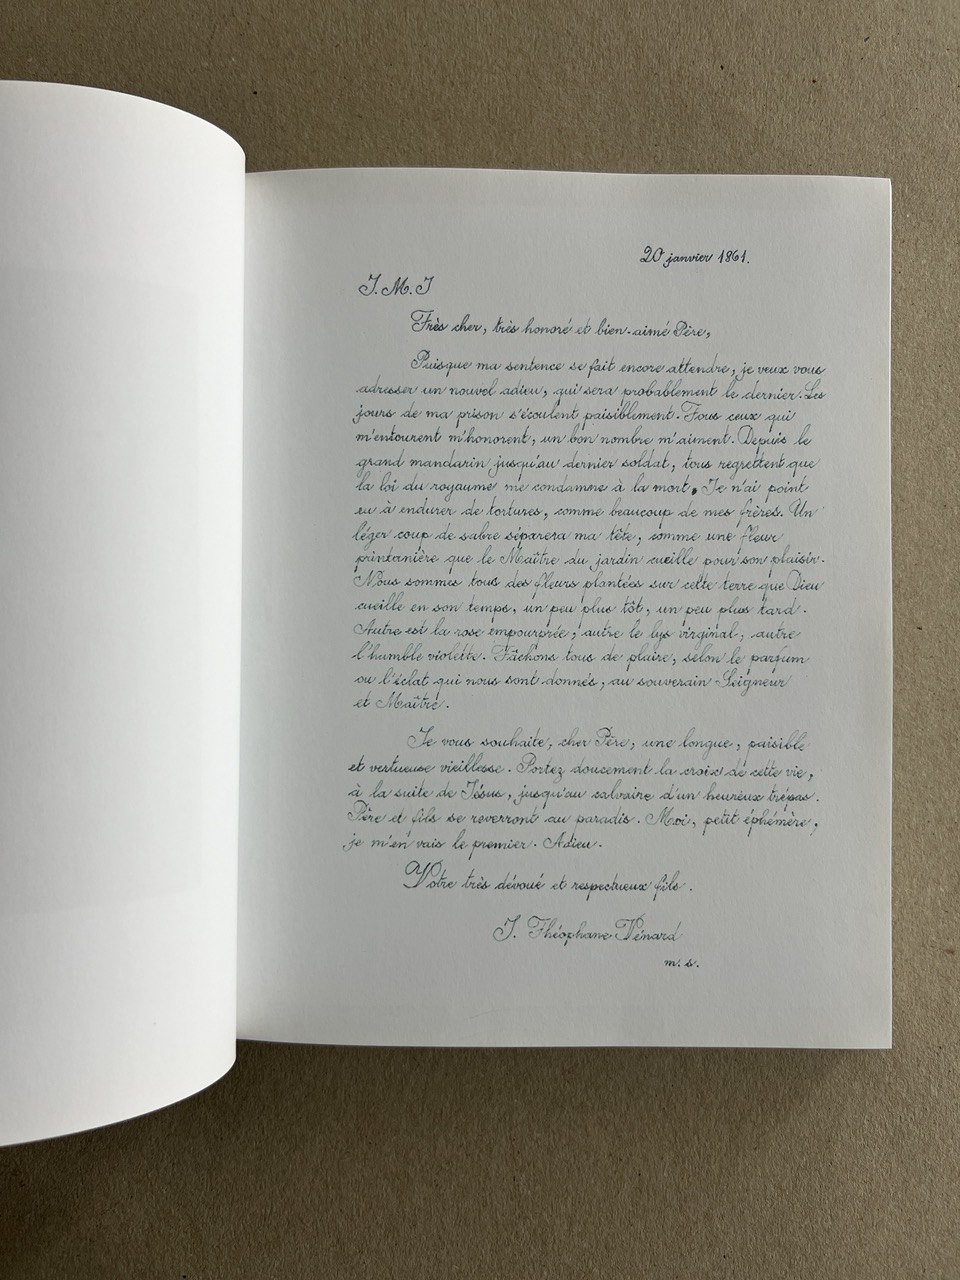 20 janvier 1861.
J. M. J
Très cher, très honoré et bien-aimé Père,
Puisque ma sentence se fait encore attendre, je veux vous
adresser un nouvel adieu, qui sera probablement le dernier. Les
jours de ma prison s'écoulent paisiblement. Tous ceux qui
m'entourent m'honorent, un bon nombre m'aiment. Depuis le
grand mandarin jusqu'au dernier soldat, tous regrettent que
la loi du royaume me condamne à la mort. Je n'ai point
eu à endurer de tortures, comme beaucoup de mes frères. Un
léger coup de sabre séparera ma tête, comme une fleur
printanière que le Maître du jardin cueille pour son plaisir.
Nous sommes tous des fleurs plantées sur cette terre que Dieu
cueille en son temps, un peu plus tôt, un peu plus tard.
Autre est la rose empourprée, autre le lys virginal, autre
l'humble violette. Tâchons tous de plaire, selon le parfum
ou l'éclat qui nous sont donnés, au souverain Seigneur
et Maître.
Je vous souhaite, cher Père, une longue, paisible
et vertueuse vieillesse. Portez doucement la croix de cette vie,
à la suite de Jésus, jusqu'au calvaire d'un heureux trépas.
Père et fils se reverront au paradis. Moi, petit éphémère,
je m'en vais le premier. Adieu.
Votre très dévoué et respectueux fils.
J. Théophane Vénard
m. s.